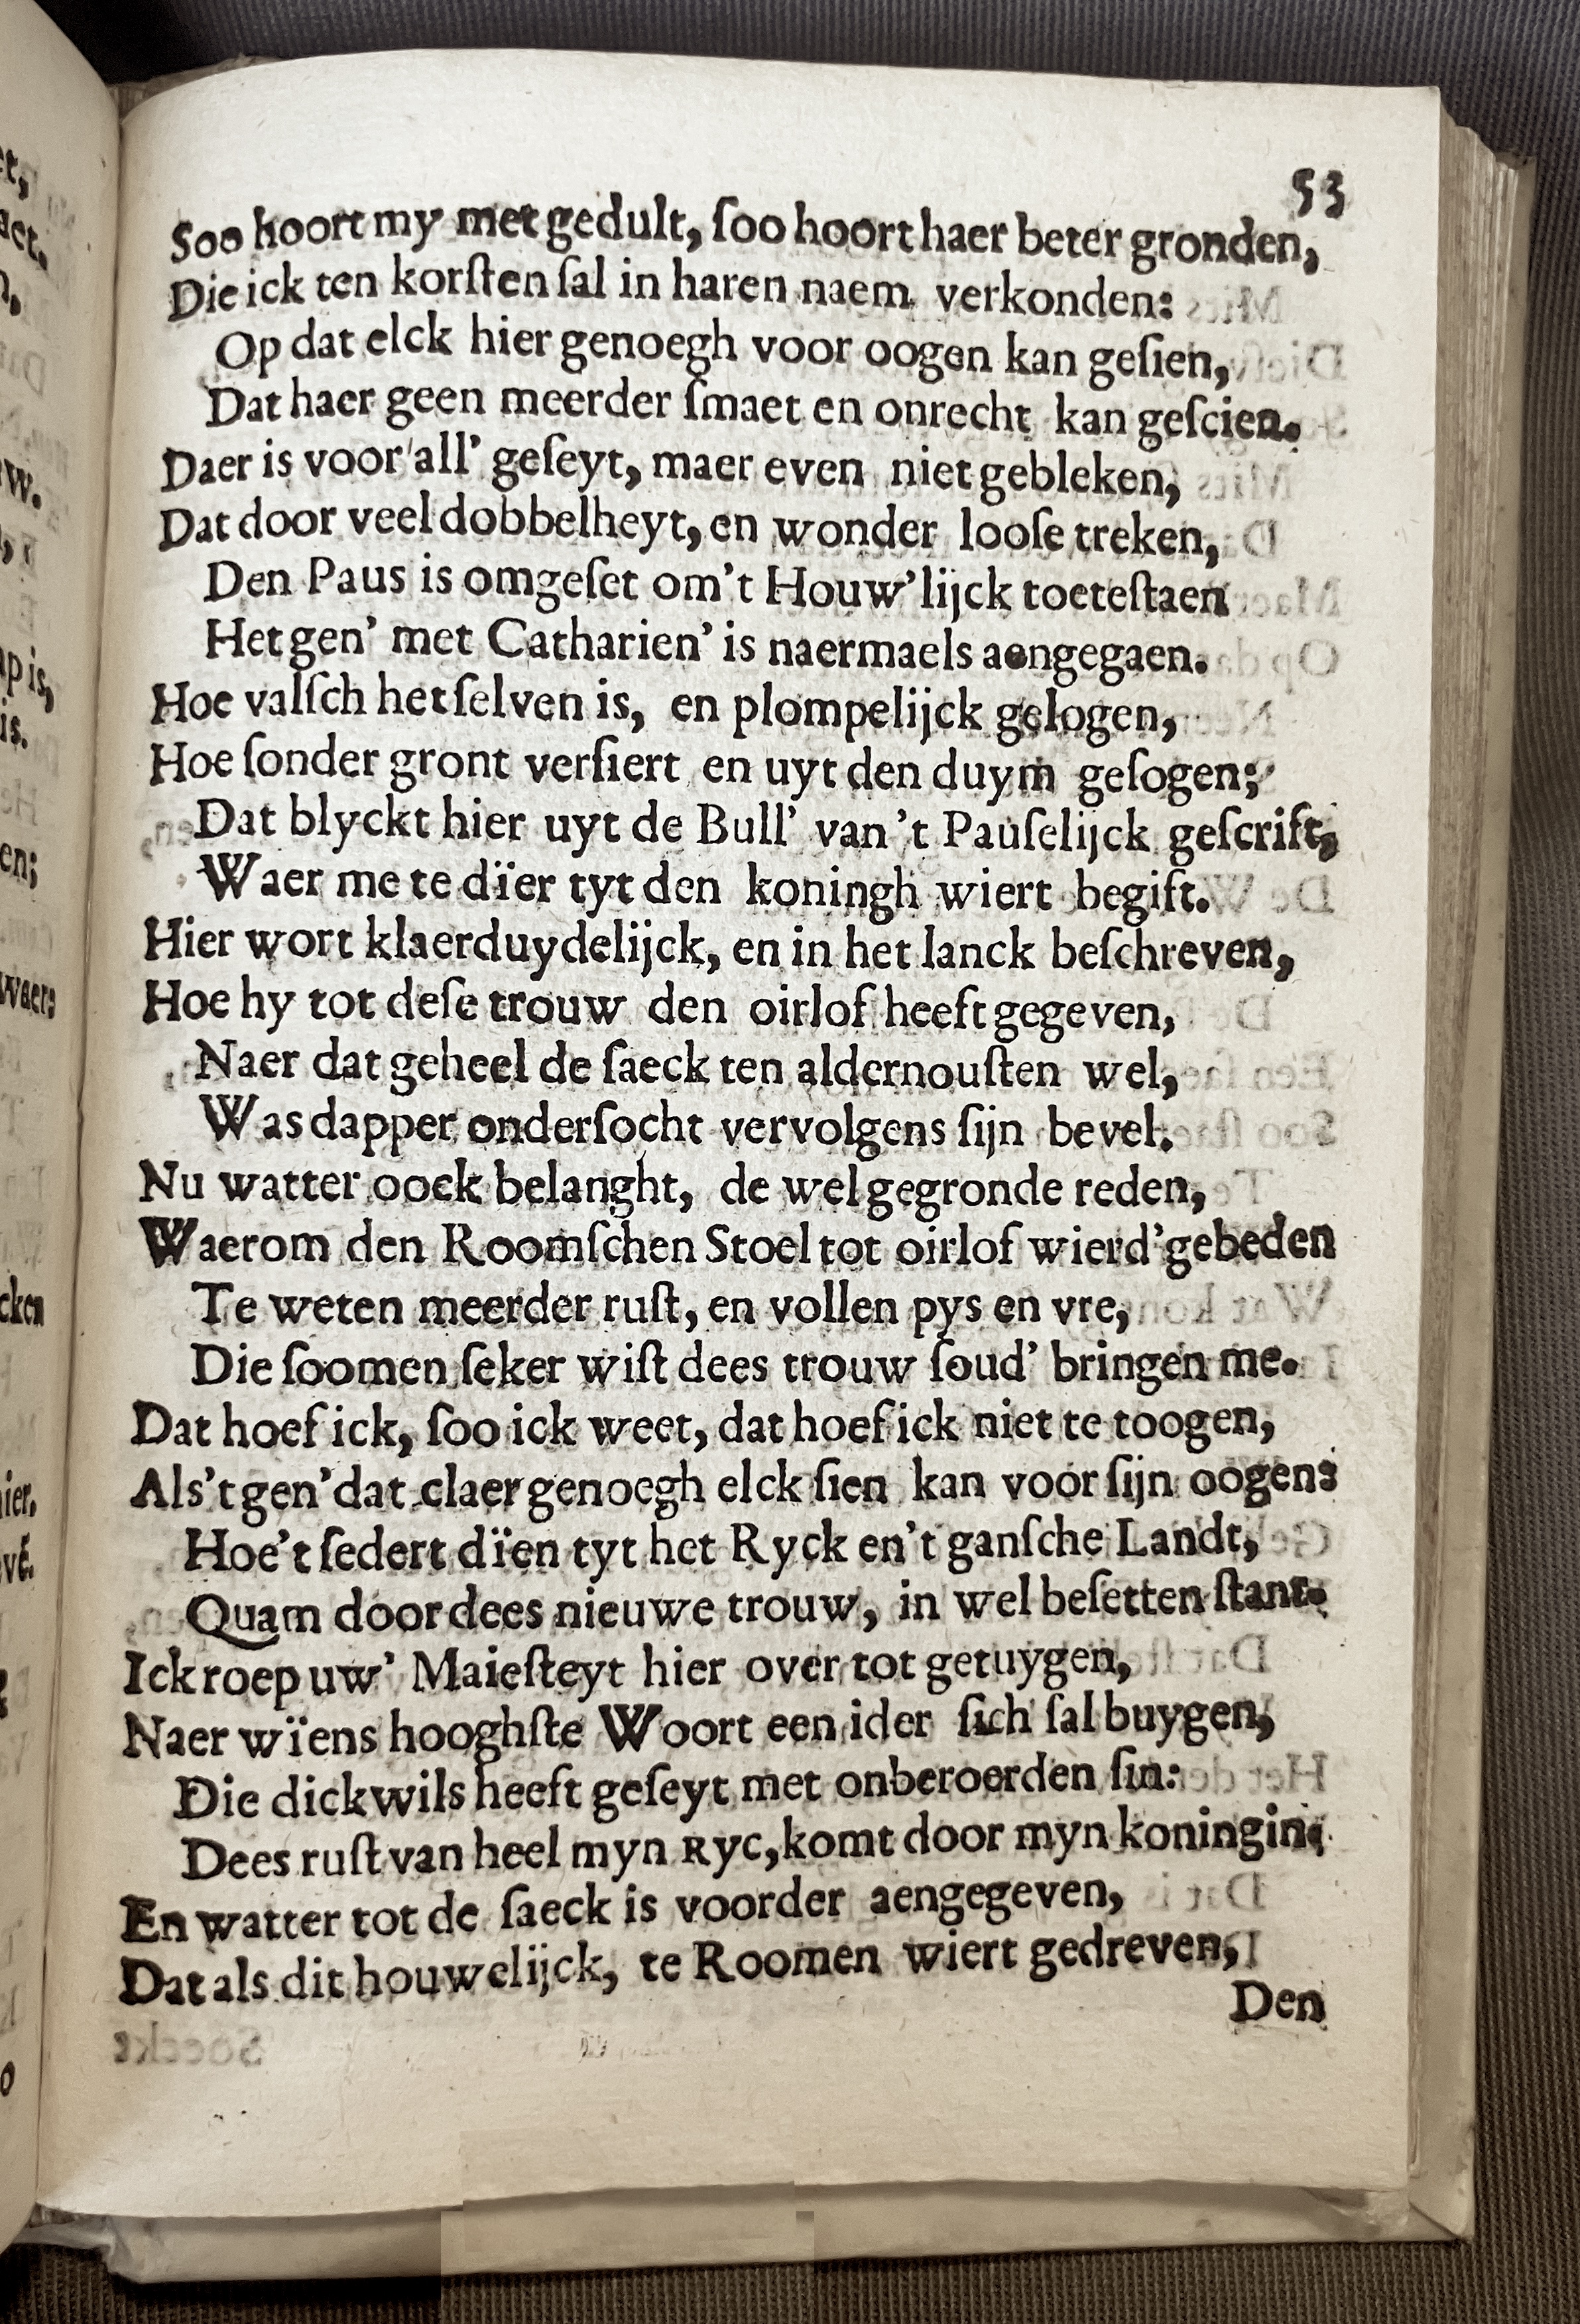 53
Soo hoort my met gedult, ſoo hoort haer beter gronden,
Die ick ten korſten ſal in haren naem verkonden:
Op dat elck hier genoegh voor oogen kan geſien,
Dat haer geen meerder ſmaet en onrecht kan geſcien.
Daer is voor all' geſeyt, maer even niet gebleken,
Dat door veel dobbelheyt, en wonder looſe treken,
Den Paus is omgeſet om't Houw'lijck toeteſtaen
Het gen' met Catharien' is naermaels aengegaen.
Hoe valſch het ſelven is, en plompelijck gelogen,
Hoe ſonder gront verſiert en uyt den duym geſogen;
Dat blyckt hier uyt de Bull' van 't Pauſelijck geſcrift,
Waer me te dïer tyt den koningh wiert begift.
Hier wort klaerduydelijck, en in het lanck beſchreven,
Hoe hy tot deſe trouw den oirlof heeft gegeven,
Naer dat geheel de ſaeck ten aldernouſten wel,
Was dapper onderſocht vervolgens ſijn bevel.
Nu watter oock belanght, de wel gegronde reden,
Waerom den Roomſchen Stoel tot oirlof wierd' gebeden
Te weten meerder ruſt, en vollen pys en vre,
Die ſoomen ſeker wiſt dees trouw ſoud' bringen me.
Dat hoef ick, ſoo ick weet, dat hoef ick niet te toogen,
Als't gen' dat claer genoegh elck ſien kan voor ſijn oogen:
Hoe't ſedert dïen tyt het Ryck en't ganſche Landt,
Quam door dees nieuwe trouw, in wel beſetten ſtant.
Ick roep uw' Maieſteyt hier over tot getuygen,
Naer wïens hooghſte Woort een ider ſich ſal buygen,
Die dickwils heeft geſeyt met onberoerden ſin:
Dees ruſt van heel myn Ryc, komt door myn koningin;
En watter tot de ſaeck is voorder aengegeven,
Dat als dit houwelijck, te Roomen wiert gedreven,
Den